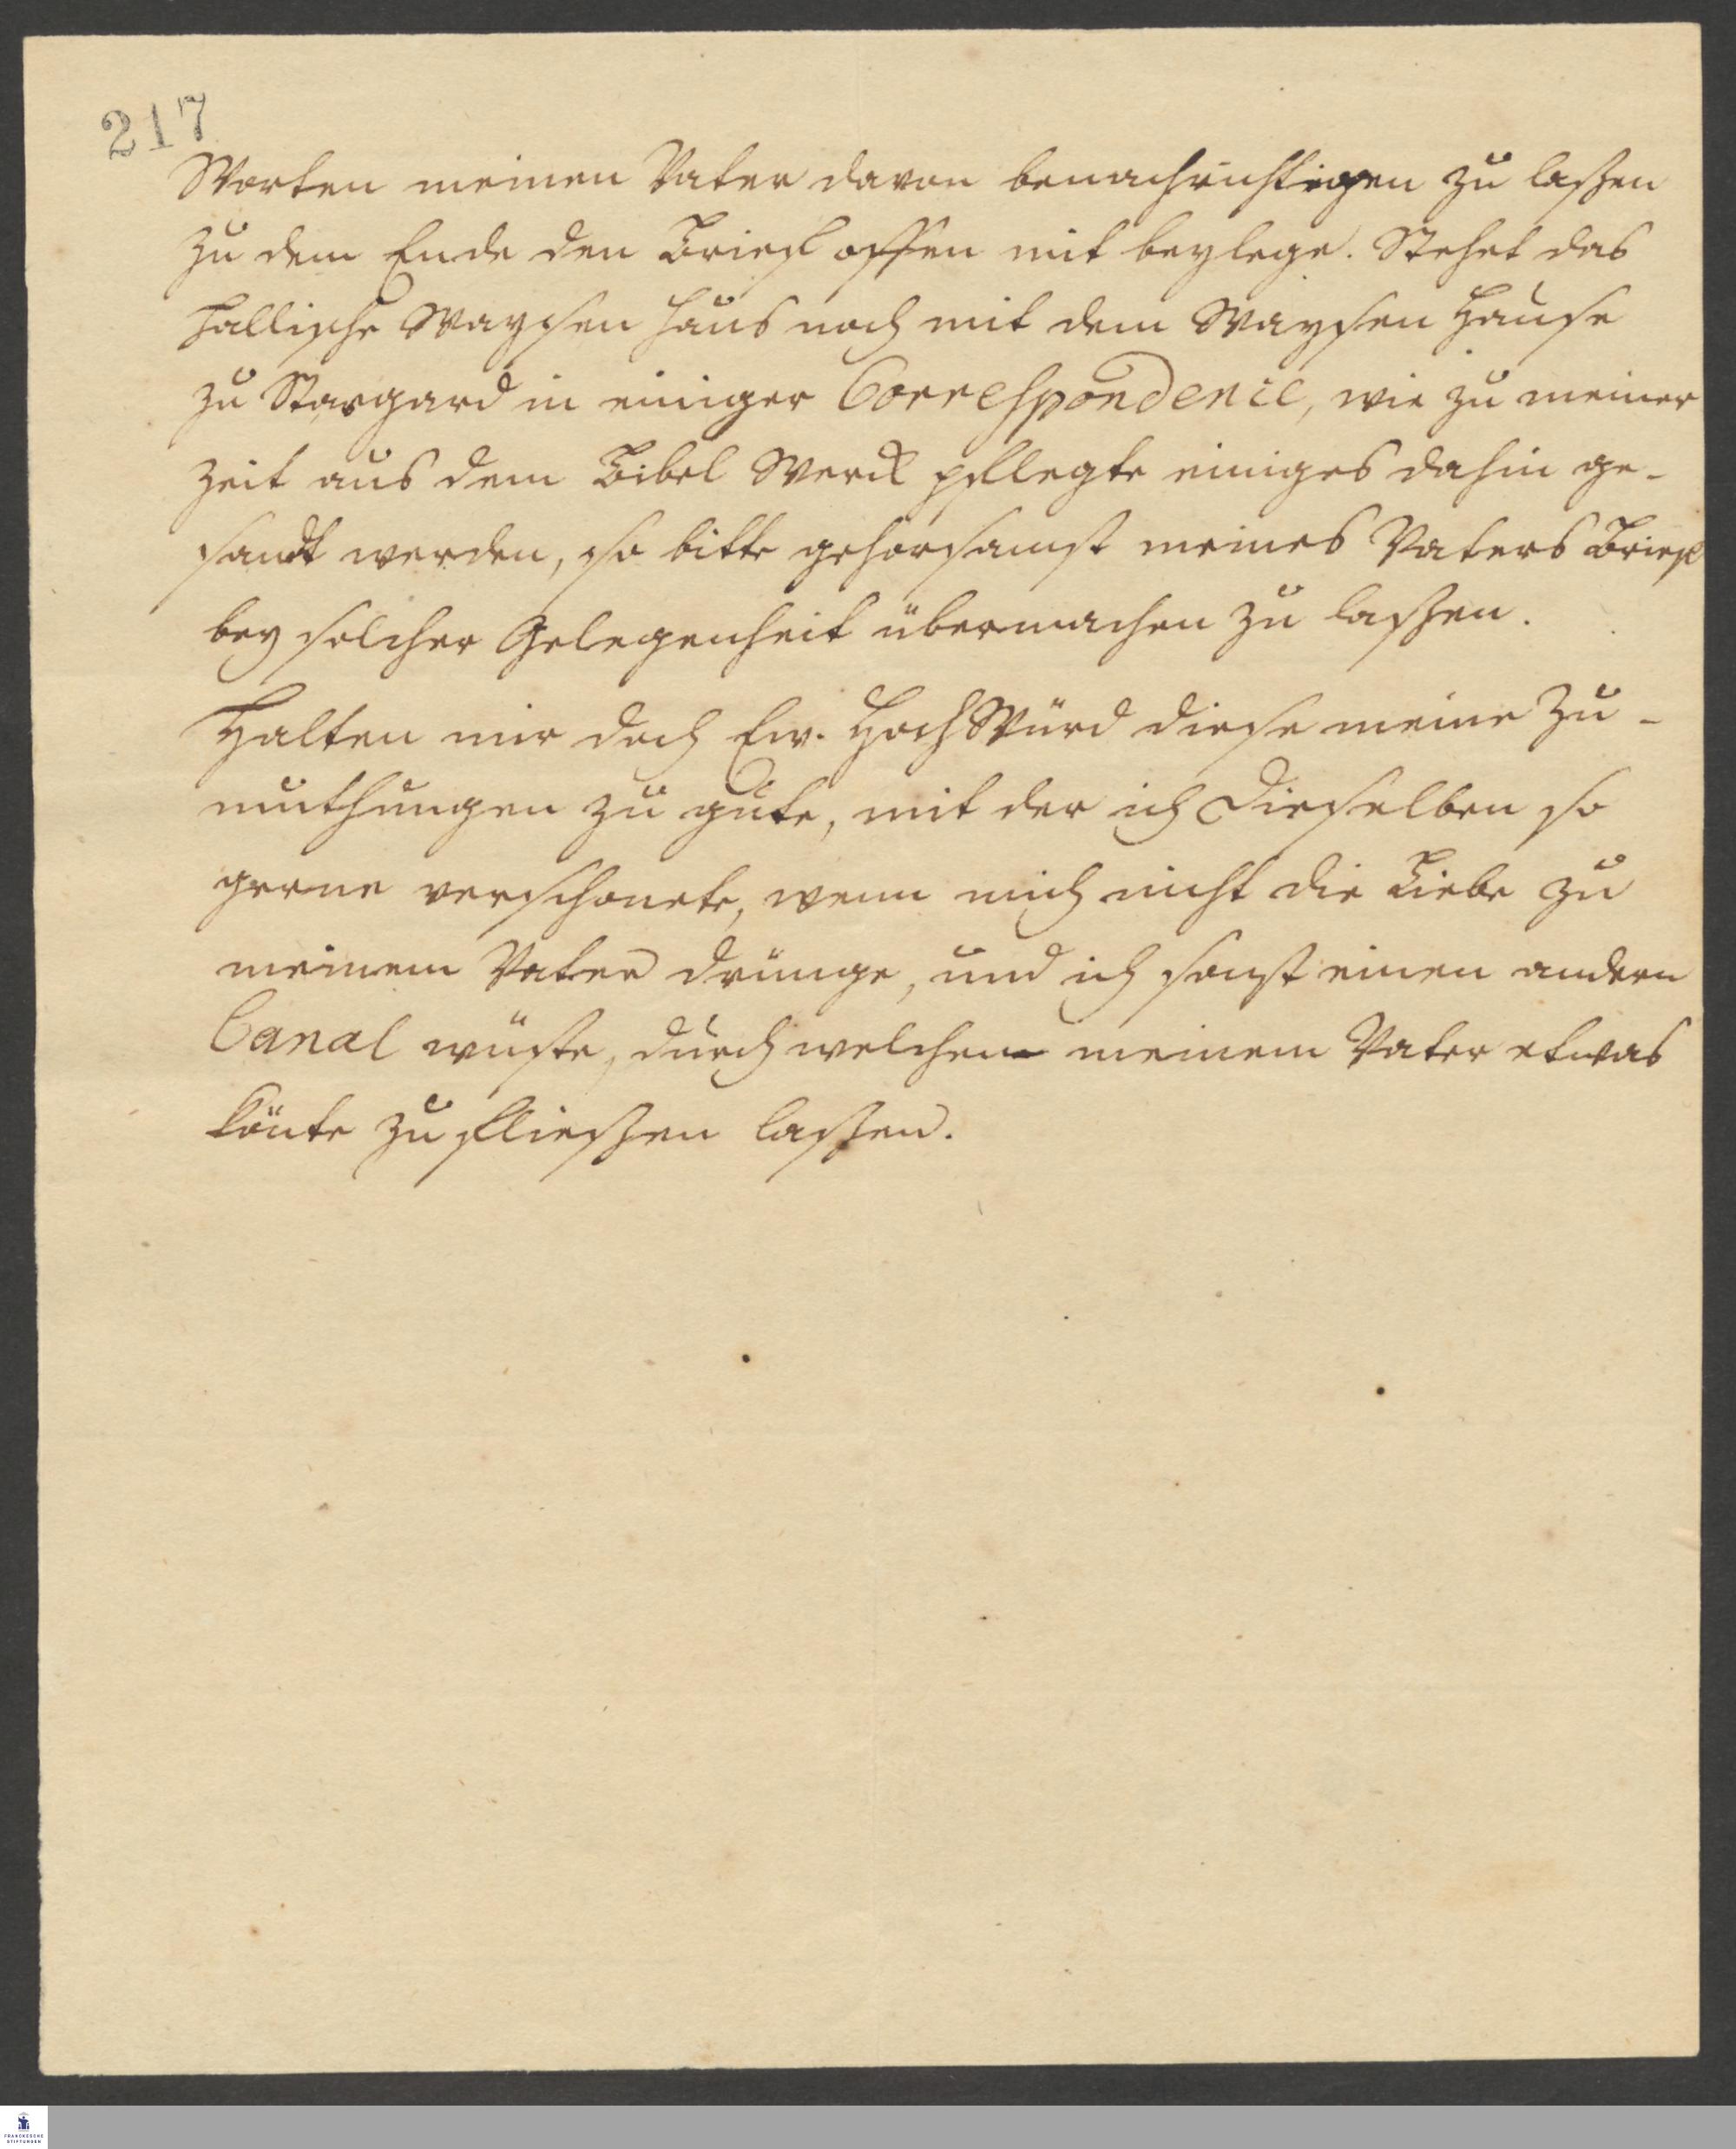 217
Worten meinen Vater davon benachrichtigen zu laßen
zu dem Ende den Brief offen mit beylege. Stehet das
Hallische Waysen Haus noch mit dem Waysen Hause
zu Stargard in einiger Correspondence, wie zu meiner
Zeit aus dem Bibel Werck pflegte einiges dahin ge-
sandt werden, so bitte gehorsamst meines Vaters Brief
bey solcher Gelegenheit übermachen zu laßen.
Halten mir doch Ew. HochWürd diese meine Zu-
muthungen zu gute, mit der ich Dieselben so
gerne verschonete, wenn mich nicht die Liebe zu
meinem Vater drünge, und ich sonst einen andern
Canal wüste, durch welchen meinem Vater etwas
könte zu fließen laßen.
FRANCKESCHE
STIFTUNGEN